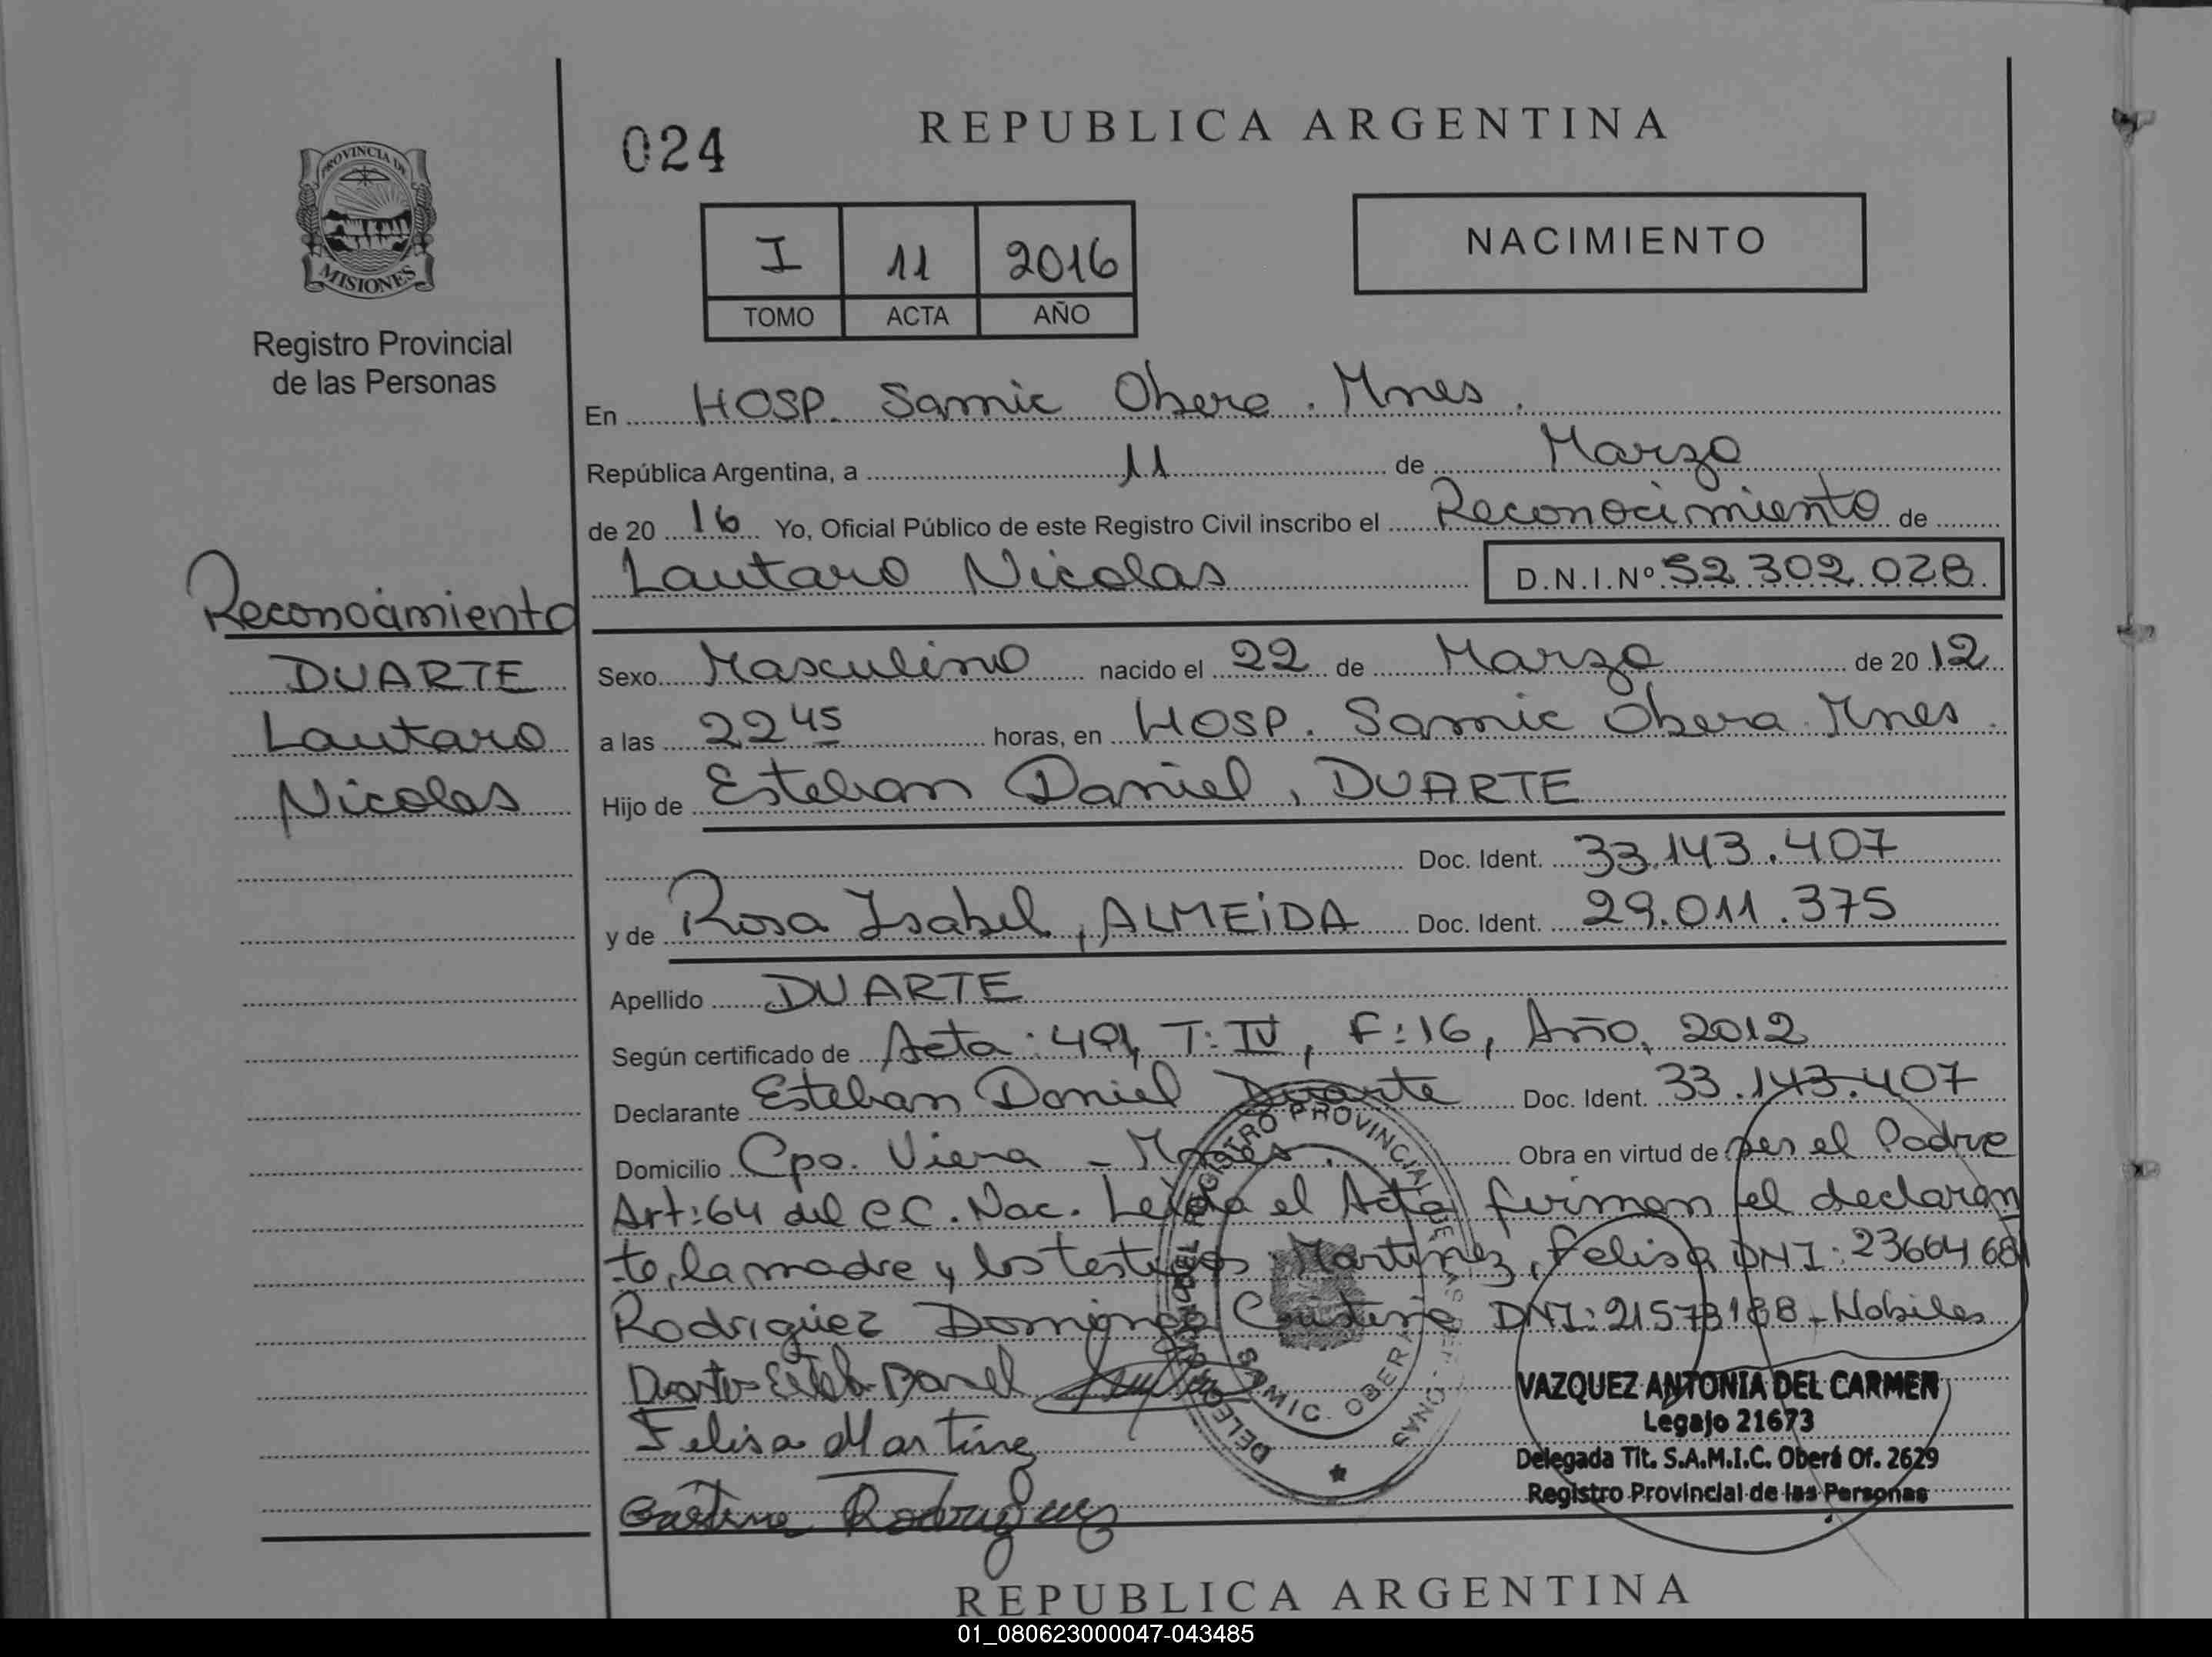 024
REPUBLICA ARGENTINA
PROVINCIA DE
MISIONES
Registro Provincial
de las Personas
I 11 2016
TOMO ACTA AÑO
NACIMIENTO
En HOSP. Samic Obera. Mnes.
República Argentina, a 11 de Marzo
de 20 16 Yo, Oficial Público de este Registro Civil inscribo el Reconocimiento de
Lautaro Nicolas D.N.I.Nº 52.302.028
Reconocimiento
DUARTE
Lautaro
Nicolas
Sexo Masculino nacido el 22 de Marzo de 20 12
a las 22 45 horas, en HOSP. Samic Obera. Mnes.
Hijo de Esteban Daniel, DUARTE
Doc. Ident. 33.143.407
y de Rosa Isabel, ALMEIDA Doc. Ident. 29.011.375
Apellido DUARTE
Según certificado de Acta: 491, T: IV, F: 16, Año, 2012
Declarante Esteban Daniel Duarte Doc. Ident. 33.143.407
Domicilio Cpo. Viera - Mnes. Obra en virtud de ser el Padre
Art: 64 del C.C. Nac. Leida el Acta firman el declaran
te, la madre y los testigos Martinez, Felisa DNI: 23664 68
Rodriguez Cristina DNI: 21573188 - Hobiles
Felisa Martine
Cristina Rodriguez
REGISTRO PROVINCIAL DE LAS PERSONAS
SAMIC. OBERA
VAZQUEZ ANTONIA DEL CARMEN
Legajo 21673
Delegada Tit. S.A.M.I.C. Oberá Of. 2629
Registro Provincial de las Personas
REPUBLICA ARGENTINA
01_080623000047-043485